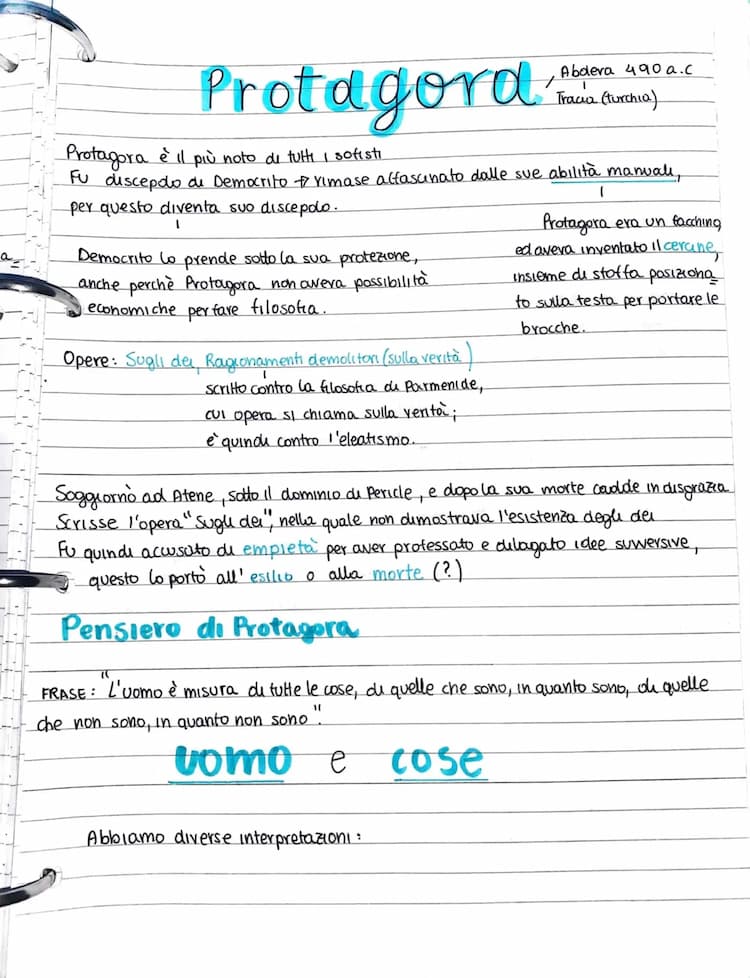 Protagora
, Abdera 490 a.c
Tracia (turchia)
Protagora è il più noto di tutti i sofisti
Fu discepolo di Democrito → rimase affascinato dalle sue abilità manuali,
per questo diventa suo discepolo.
Protagora era un facchino
ed aveva inventato il cercine,
insieme di stoffa posiziona
to sulla testa per portare le
brocche.
Democrito lo prende sotto la sua protezione,
anche perchè Protagora non aveva possibilità
economiche per fare filosofia.
Opere: Sugli dei, Ragionamenti demolitori (sulla verità)
scritto contro la filosofia di Parmenide,
cui opera si chiama sulla verità;
è quindi contro l'eleatismo.
Soggiornò ad Atene, sotto il dominio di Pericle, e dopo la sua morte cadde in disgrazia
Scrisse l'opera "Sugli dei", nella quale non dimostrava l'esistenza degli dei
Fu quindi accusato di empietà per aver professato e dilagato idee suvversive,
questo lo portò all'esilio o alla morte (?)
Pensiero di Protagora
FRASE: "L'uomo è misura di tutte le cose, di quelle che sono, in quanto sono, di quelle
che non sono, in quanto non sono".
uomo e cose
Abbiamo diverse interpretazioni:
a